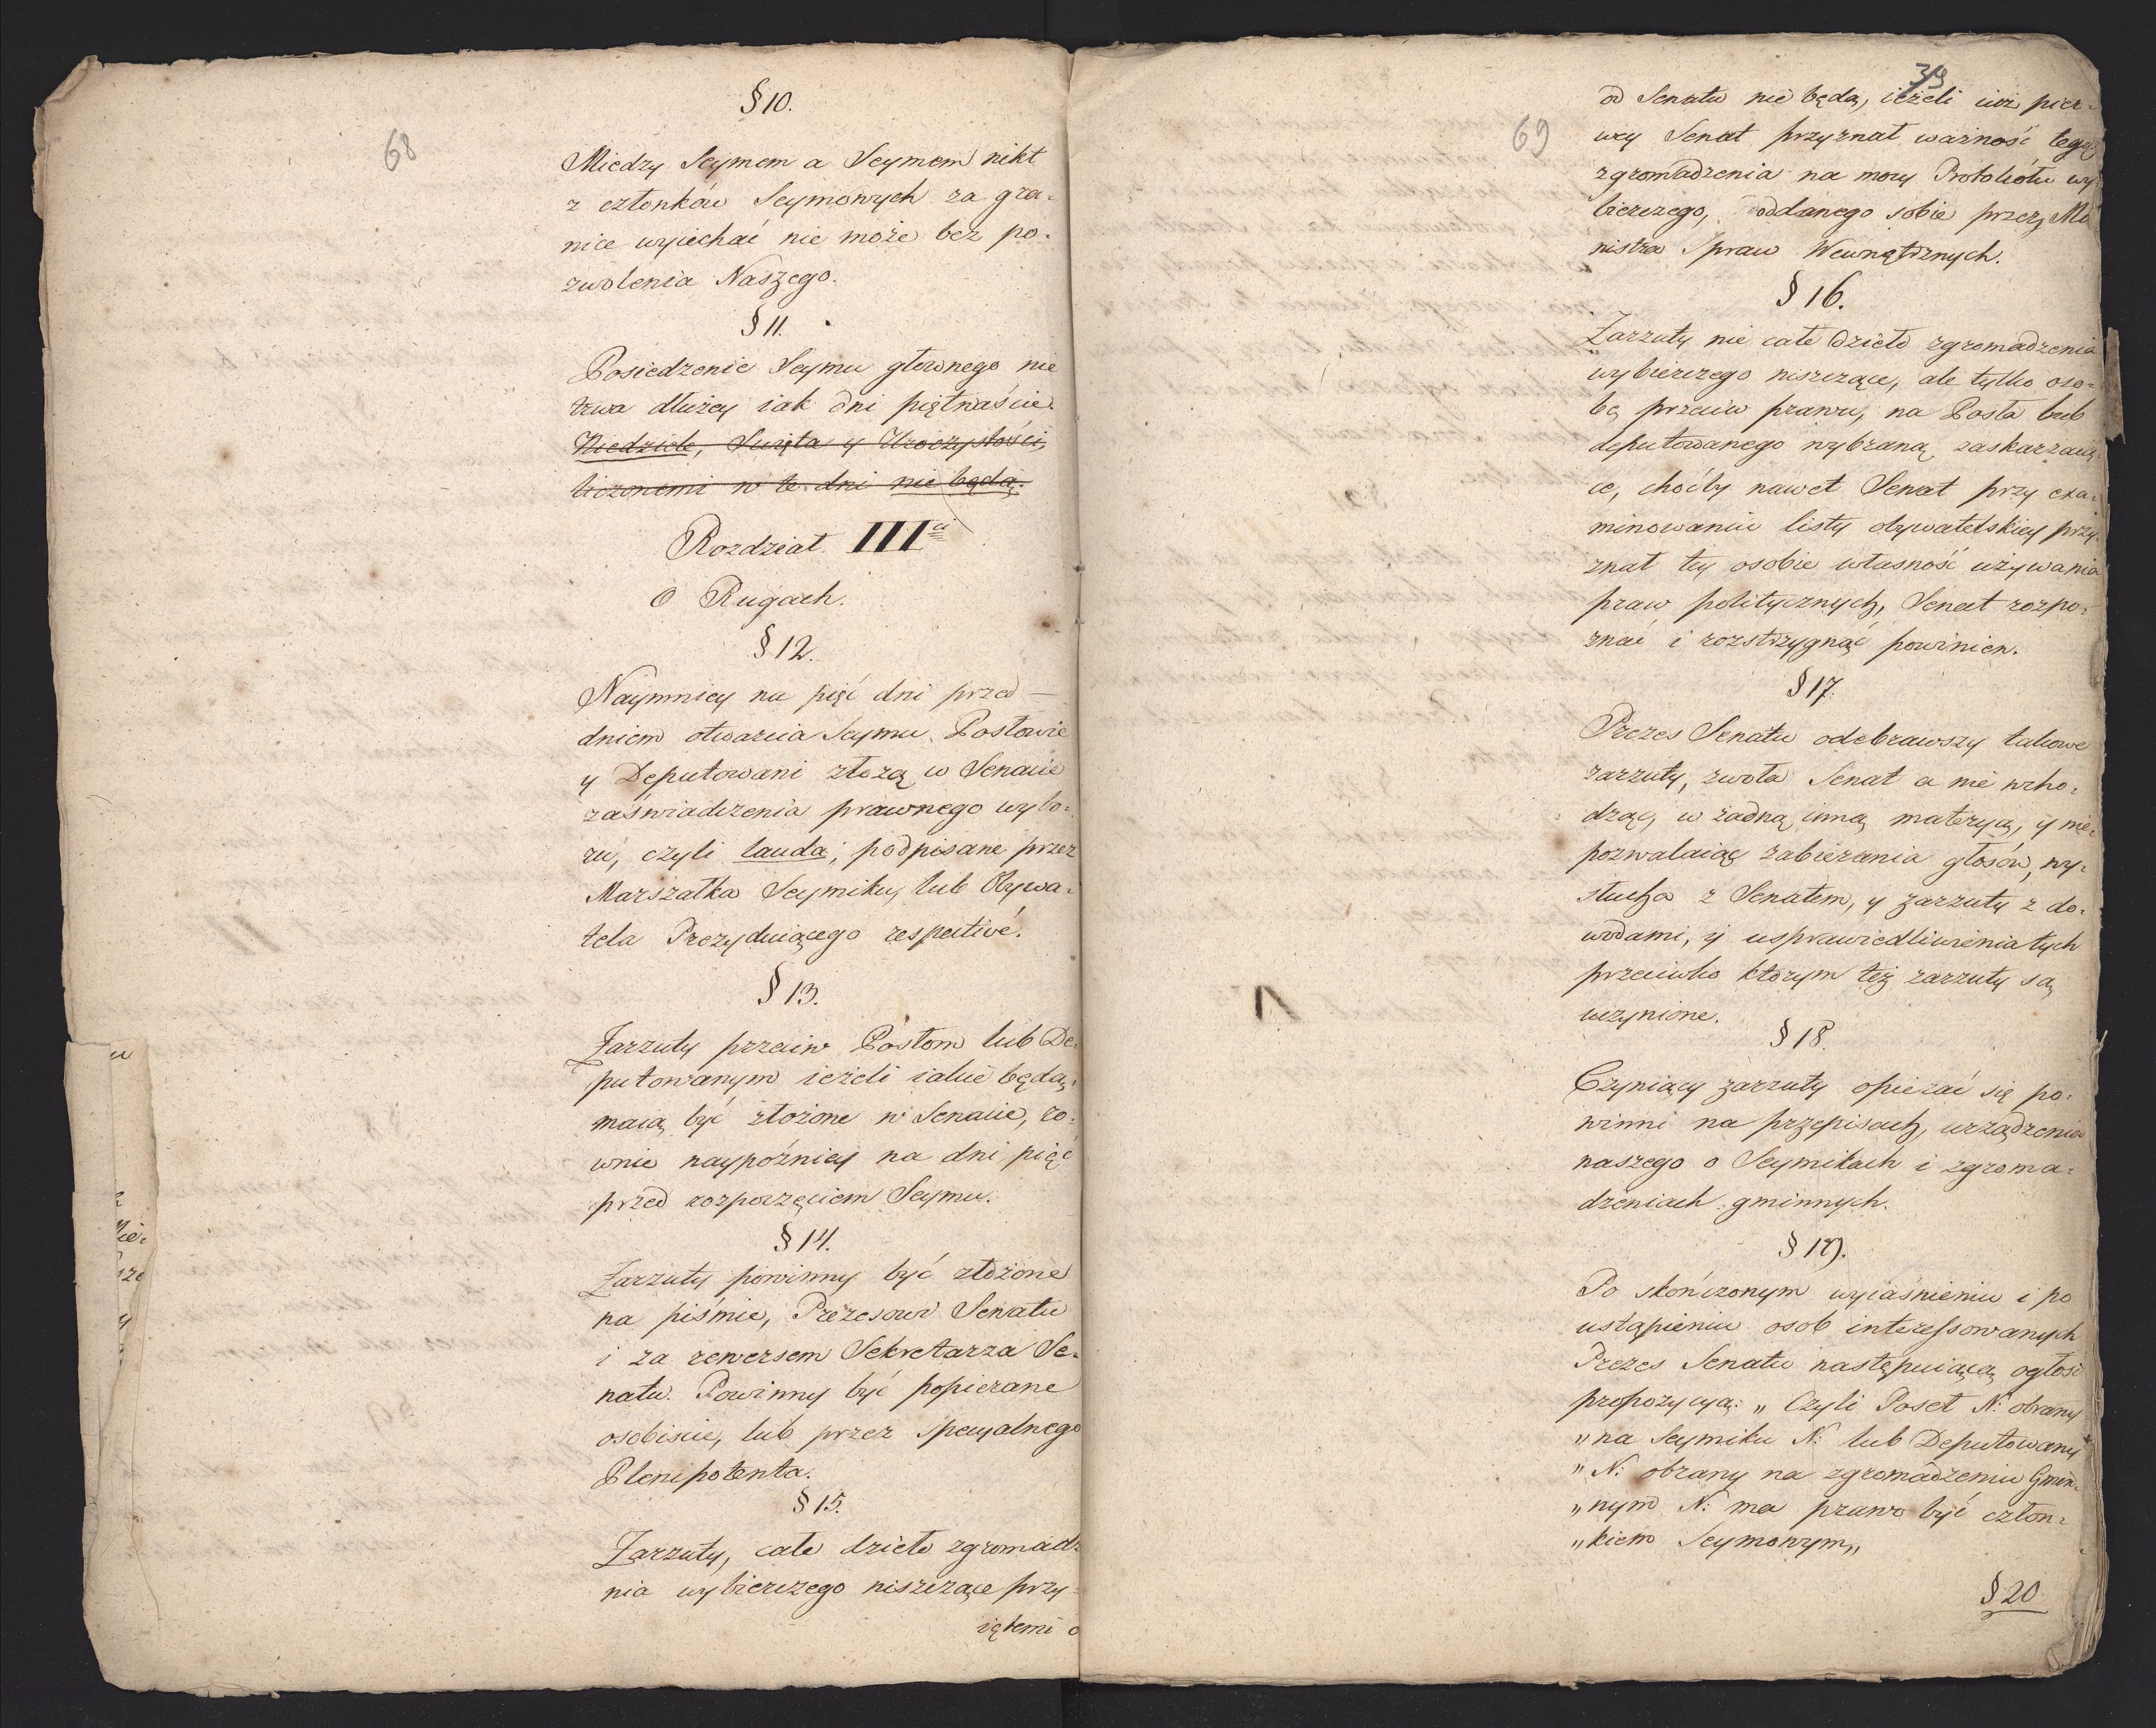 § 10.
68
Miedzy Seymem a Seymem nikt
z członków Seymowych za gra-
nice wyiechać nie może bez po-
zwolenia Naszego.
§ 11.
Posiedzenie Seymu głownego nie
trwa dłużey iak dni piętnaście.
Niedziele, Swięta y Uroczystości,
liczonemi w te dni nie będą.
Rozdział IIIci
O Rugach.
§ 12.
Naymniey na pięć dni przed
dniem otwarcia Seymu Posłowie
y Deputowani złożą w Senacie
zaświadczenia prawnego wybo-
ru, czyli lauda; podpisane przez
Marszałka Seymiku, lub Obywa-
tela Prezyduiącego respective.
§ 13.
Zarzuty przeciw Posłom lub De-
putowanym ieżeli iakie będą,
maią być złożone w Senacie, ró-
wnie naypóźniey na dni pięć
przed rozpoczęciem Seymu.
§ 14.
Zarzuty powinny być złożone
na piśmie, Prezesowi Senatu
i za rewersem Sekretarza Se-
natu. Powinny być popierane
osobiscie, lub przez specyalnego
Plenipotenta.
§ 15.
Zarzuty, całe dzieło zgromadz
nia wybierczego niszczące przy-
iętemi o
39
69
od Senatu nie będą, ieżeli iuż pier-
wey Senat przyznał ważność tego
zgromadzenia na mocy Protokółu wy
bierczego, oddanego sobie przez Mi
nistra Spraw Wewnętrznych.
§ 16.
Zarzuty nie całe dzieło zgromadzenia
wybierczego niszczące, ale tylko oso-
bę przeciw prawu, na Posła lub
deputowanego wybraną zaskarzaią-
ce, choćby nawet Senat przy exa-
minowaniu listy obywatelskiey przy-
znał tey osobie własność używania
praw politycznych, Senat rozpo-
znać i rozstrzygnąć powinien.
§ 17.
Prezes Senatu odebrawszy takowe
zarzuty, zwoła Senat a nie wcho-
dząc w żadną inną materyą, y nie-
pozwalaiąc zabierania głosów, wy-
słucha z Senatem, y zarzuty z do-
wodami, y usprawiedliwienia tych
przeciwko którym też zarzuty są
uczynione.
§ 18.
Czyniący zarzuty opierać się po-
winni na przepisach, urządzenia
naszego o Seymikach i zgroma-
dzeniach gminnych.
§ 19.
Po skończonym wyiaśnieniu i po
ustąpieniu osob interessowanych
Prezes Senatu następuiącą ogłosi
propozycyą: „Czyli Poseł N: obrany
„na Seymiku N: lub Deputowany
„N: obrany na zgromadzeniu Gmin-
„nym N: ma prawo być człon-
„kiem Seymowym„
§ 20